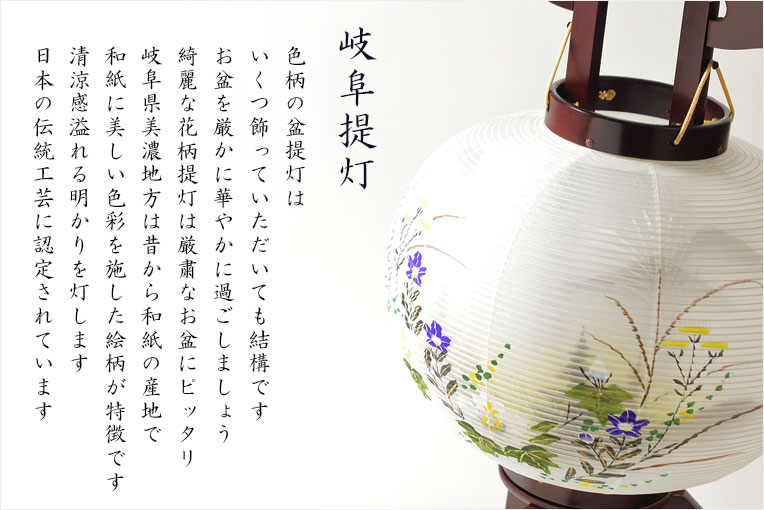 岐阜提灯
色柄の盆提灯は
いくつ飾っていただいても結構です
お盆を厳かに華やかに過ごしましょう
綺麗な花柄提灯は厳粛なお盆にピッタリ
岐阜県美濃地方は昔から和紙の産地で
和紙に美しい色彩を施した絵柄が特徴です
清涼感溢れる明かりを灯します
日本の伝統工芸に認定されています